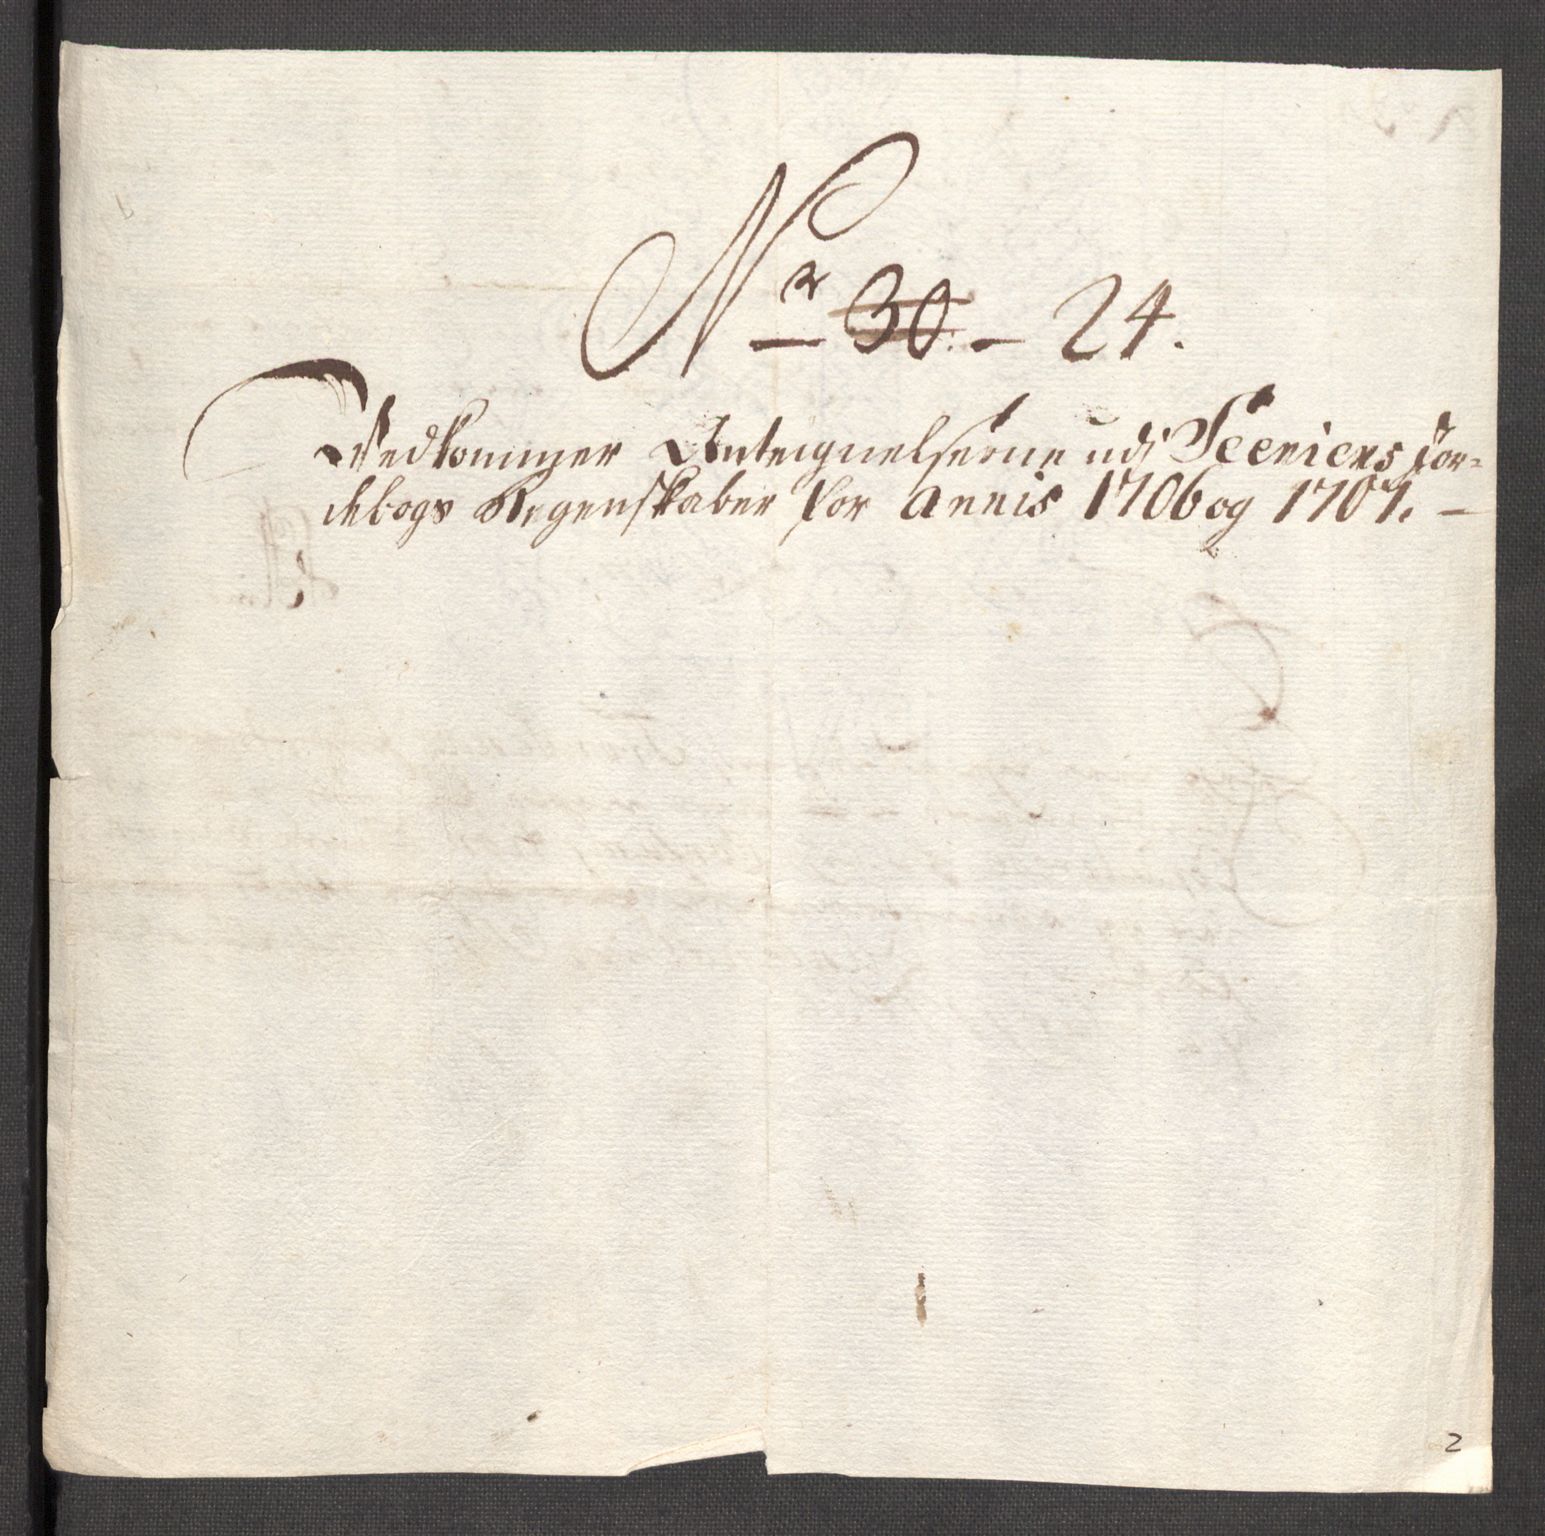 Nr 30. - 24.
Vedkommer Anteignelserne udj Seeniens Jor-
debogs Regenskaber for Annis 1706 og 1707. -
2